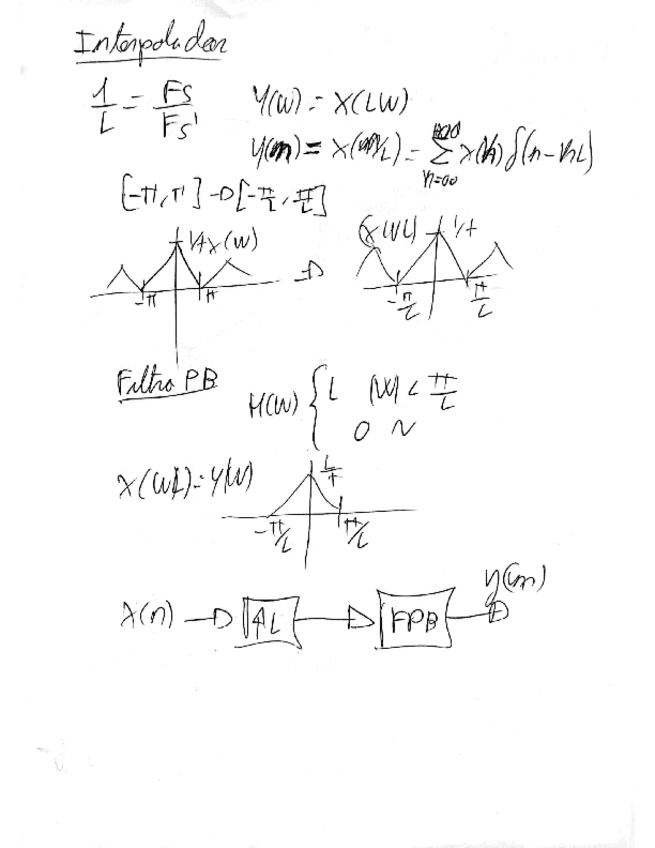 Interpolador
1/L = Fs/Fs' Y(W) = X(LW)
y(m) = x(m/L) = Σ x(k) δ(n-kL)
n=∞
[-π, π] → [-π/L, π/L]
1/+ X(W) X(WL) 1/+
-π π -π/L π/L
Filtro PB
H(W) { L |W| < π/L
0 ~
X(WL) = Y(W) L/+
-π/L π/L
x(n) → ↑L → FPB → y(m)